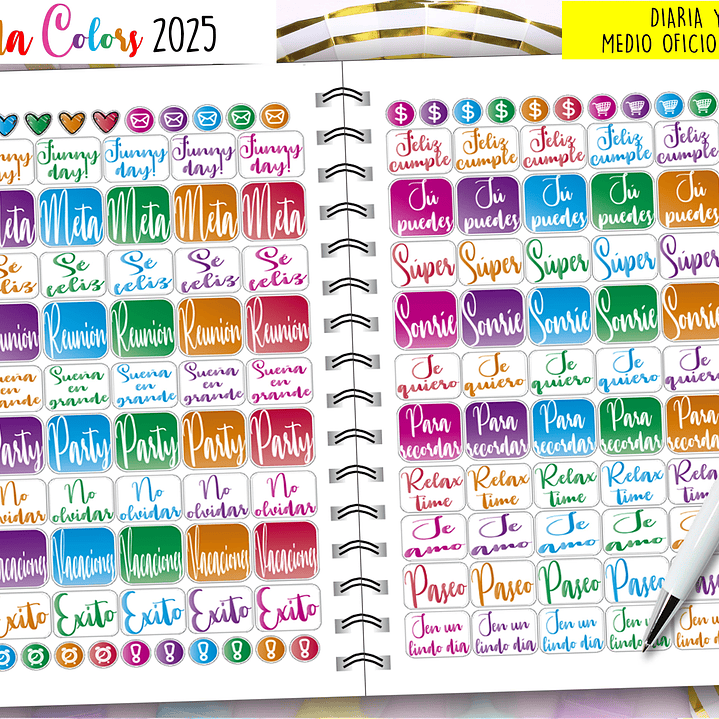 Colors 2025
DIARIA Y
MEDIO OFICIO
Funny Funny Funny Funny
day! day! day! day! day!
Meta Meta Meta Meta
Sé Sé Sé Sé Sé
feliz feliz feliz feliz
Reunión Reunión Reunión Reunión
Sueña Sueña Sueña Sueña
en en en en en
grande grande grande grande
Party Party Party Party
No No No No No
olvidar olvidar olvidar olvidar
Vacaciones Vacaciones Vacaciones Vacaciones
Exito Exito Exito Exito
Feliz Feliz Feliz Feliz Feliz
cumple cumple cumple cumple cumple
Tú Tú Tú Tú Tú
puedes puedes puedes puedes puedes
Súper Súper Súper Súper Súper
Sonríe Sonríe Sonríe Sonríe Sonríe
Te Te Te Te Te
quiero quiero quiero quiero quiero
Para Para Para Para Para
recordar recordar recordar recordar recordar
Relax Relax Relax Relax Relax
time time time time
Te Te Te Te
amo amo amo amo
Paseo Paseo Paseo Paseo
Ten un Ten un Ten un Ten un
lindo día lindo día lindo día lindo día